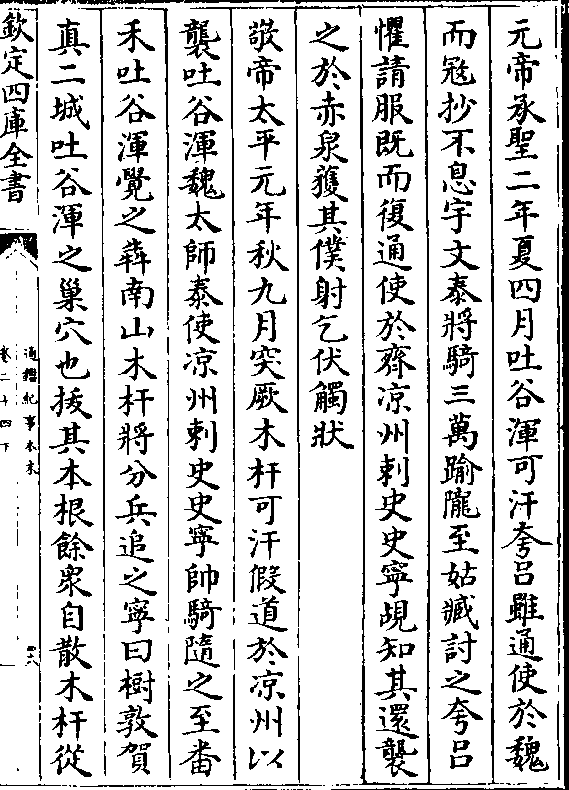 元帝承聖二年夏四月吐谷渾可汗夸呂雖通使於魏
而冦抄不息宇文泰將騎三萬踰隴至姑臧討之夸呂
懼請服既而復通使於齊凉州刺史史寧覘知其還襲
之於赤泉獲其僕射乞伏觸狀
敬帝太平元年秋九月突厥木杆可汗假道於凉州以
襲吐谷渾魏太師泰使凉州刺史史寧帥騎隨之至番
禾吐谷渾覺之犇南山木杆將分兵追之寧曰樹敦賀
真二城吐谷渾之巢穴也拔其本根餘衆自散木杆從
欽定四庫全書
通鑑紀事本末
卷二十四下